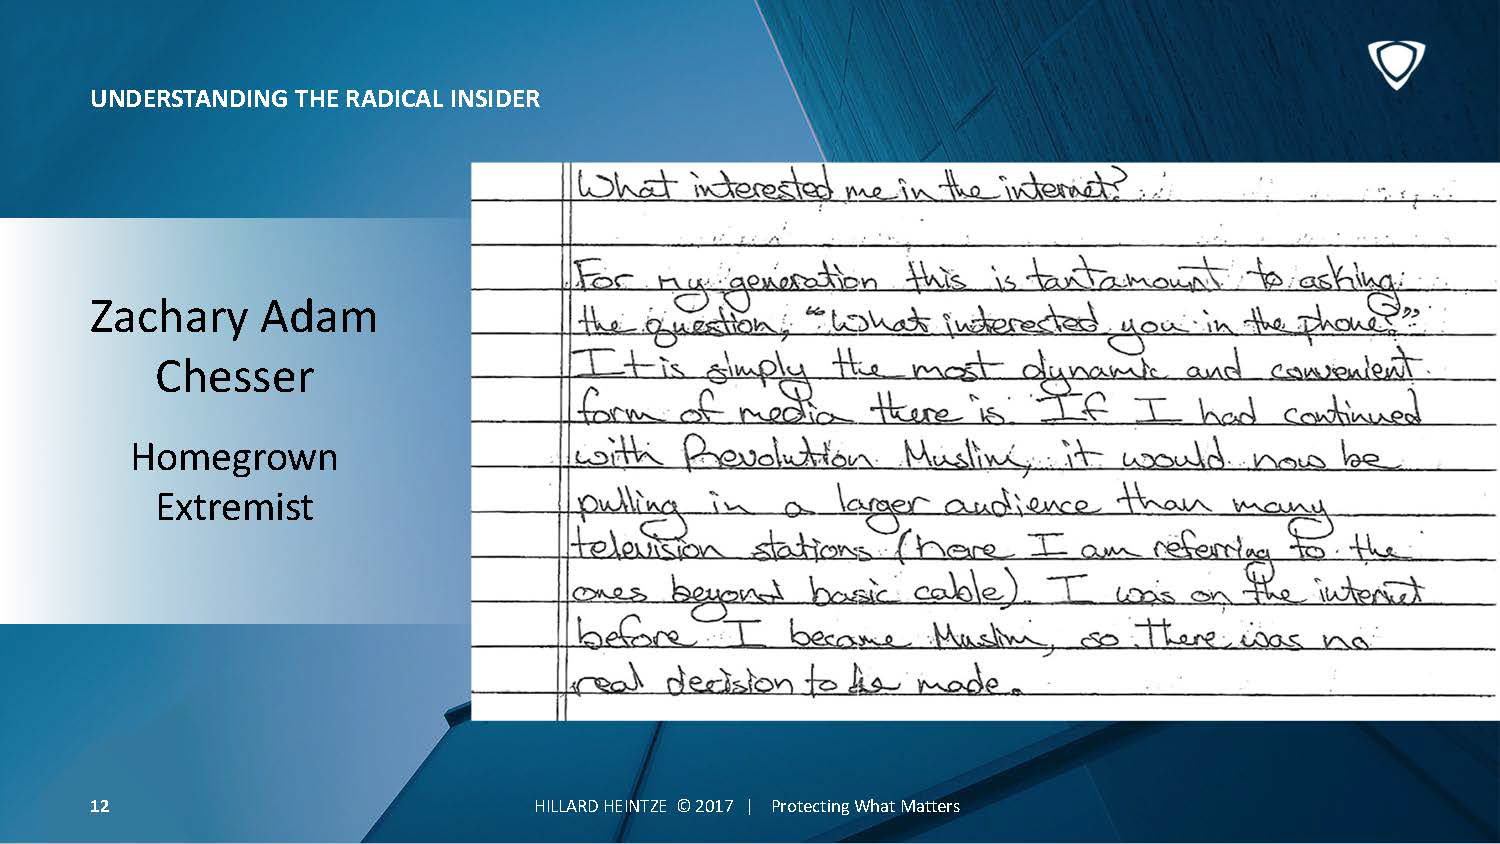 UNDERSTANDING THE RADICAL INSIDER
Zachary Adam
Chesser
Homegrown
Extremist
What interested me in the internet?
For my generation this is tantamount to asking
the question, "What interested you in the phone?"
It is simply the most dynamic and convenient
form of media there is. If I had continued
with Revolution Muslim, it would now be
pulling in a larger audience than many
television stations (here I am referring to the
ones beyond basic cable). I was on the internet
before I became Muslim, so there was no
real decision to be made.
12
HILLARD HEINTZE © 2017 | Protecting What Matters